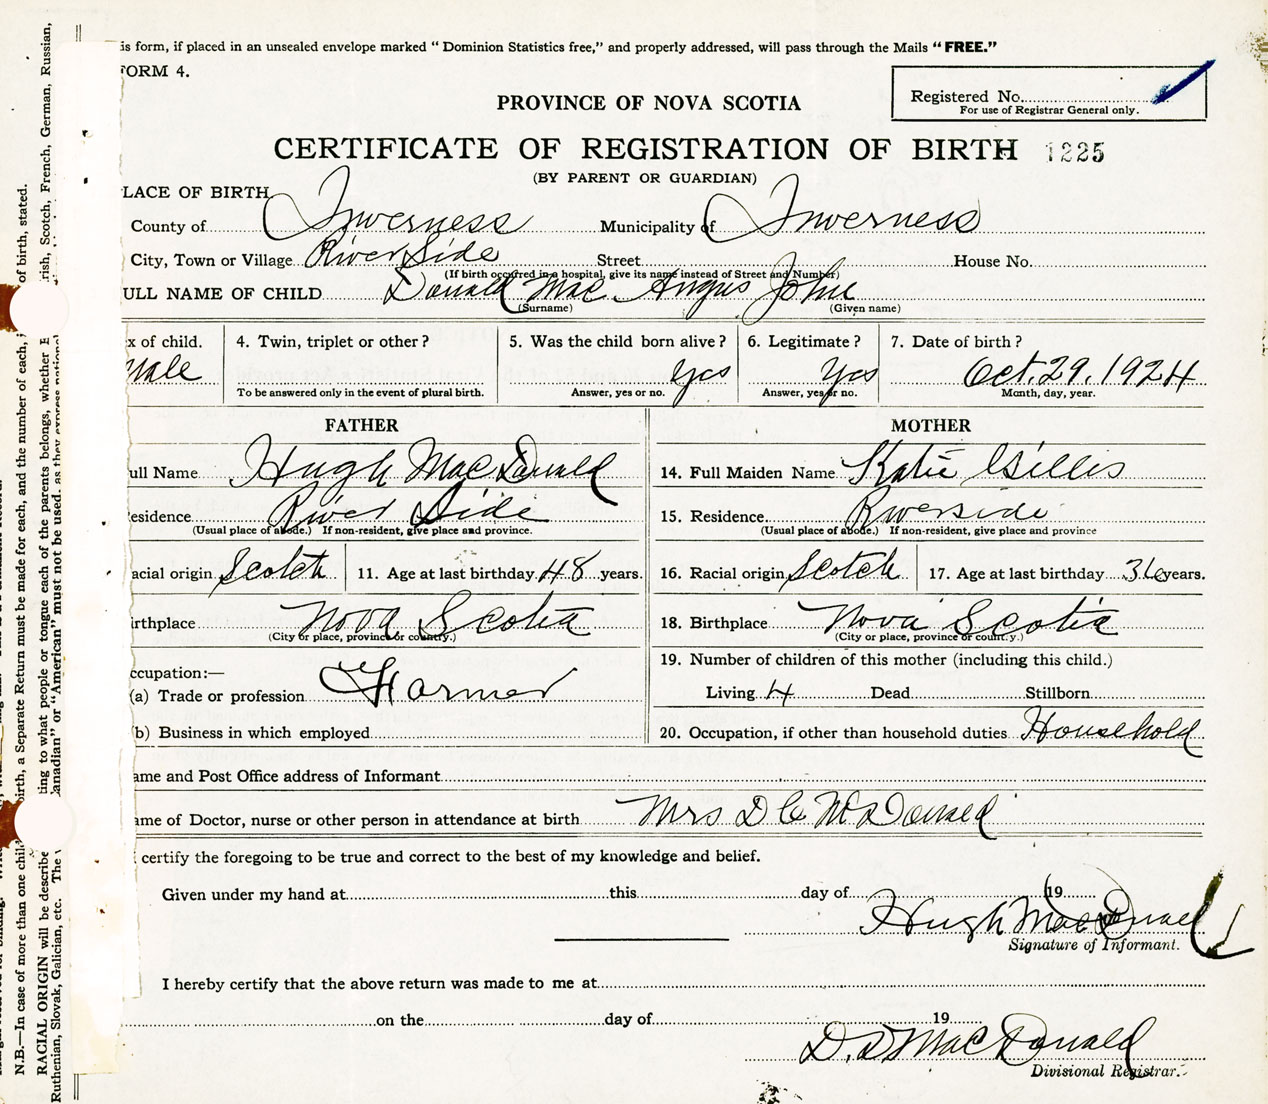 is form, if placed in an unsealed envelope marked “ Dominion Statistics free,” and properly addressed, will pass through the Mails “ FREE.”
FORM 4.
Registered No.
For use of Registrar General only.
PROVINCE OF NOVA SCOTIA
CERTIFICATE OF REGISTRATION OF BIRTH 1225
(BY PARENT OR GUARDIAN)
LACE OF BIRTH
County of Inverness Municipality of Inverness
City, Town or Village River Side Street House No.
(If birth occurred in a hospital, give its name instead of Street and Number)
ULL NAME OF CHILD Donald Mac Angus John
(Surname) (Given name)
x of child. 4. Twin, triplet or other? 5. Was the child born alive? 6. Legitimate? 7. Date of birth?
Male Yes Yes Oct. 29. 1924
To be answered only in the event of plural birth. Answer, yes or no. Answer, yes or no. Month, day, year.
FATHER MOTHER
ull Name Hugh MacDonald 14. Full Maiden Name Katie Gillis
esidence River Side 15. Residence Riverside
(Usual place of abode.) If non-resident, give place and province. (Usual place of abode.) If non-resident, give place and province
acial origin Scotch 11. Age at last birthday 48 years. 16. Racial origin Scotch 17. Age at last birthday 36 years.
irthplace Nova Scotia 18. Birthplace Nova Scotia
(City or place, province or country.) (City or place, province or country.)
ccupation:— 19. Number of children of this mother (including this child.)
(a) Trade or profession Farmer Living 4 Dead Stillborn
b) Business in which employed 20. Occupation, if other than household duties Household
ame and Post Office address of Informant
ame of Doctor, nurse or other person in attendance at birth Mrs D C McDonald
certify the foregoing to be true and correct to the best of my knowledge and belief.
Given under my hand at this day of 19
Hugh MacDonald
Signature of Informant.
I hereby certify that the above return was made to me at
on the day of 19
D. D MacDonald
Divisional Registrar.
of birth, stated.
N.B.—In case of more than one child irth, a Separate Return must be made for each, and the number of each,
RACIAL ORIGIN will be describe ting to what people or tongue each of the parents belongs, whether E rish, Scotch, French, German, Russian,
Ruthenian, Slovak, Galician, etc. The anadian” or “American” must not be used. as they express national